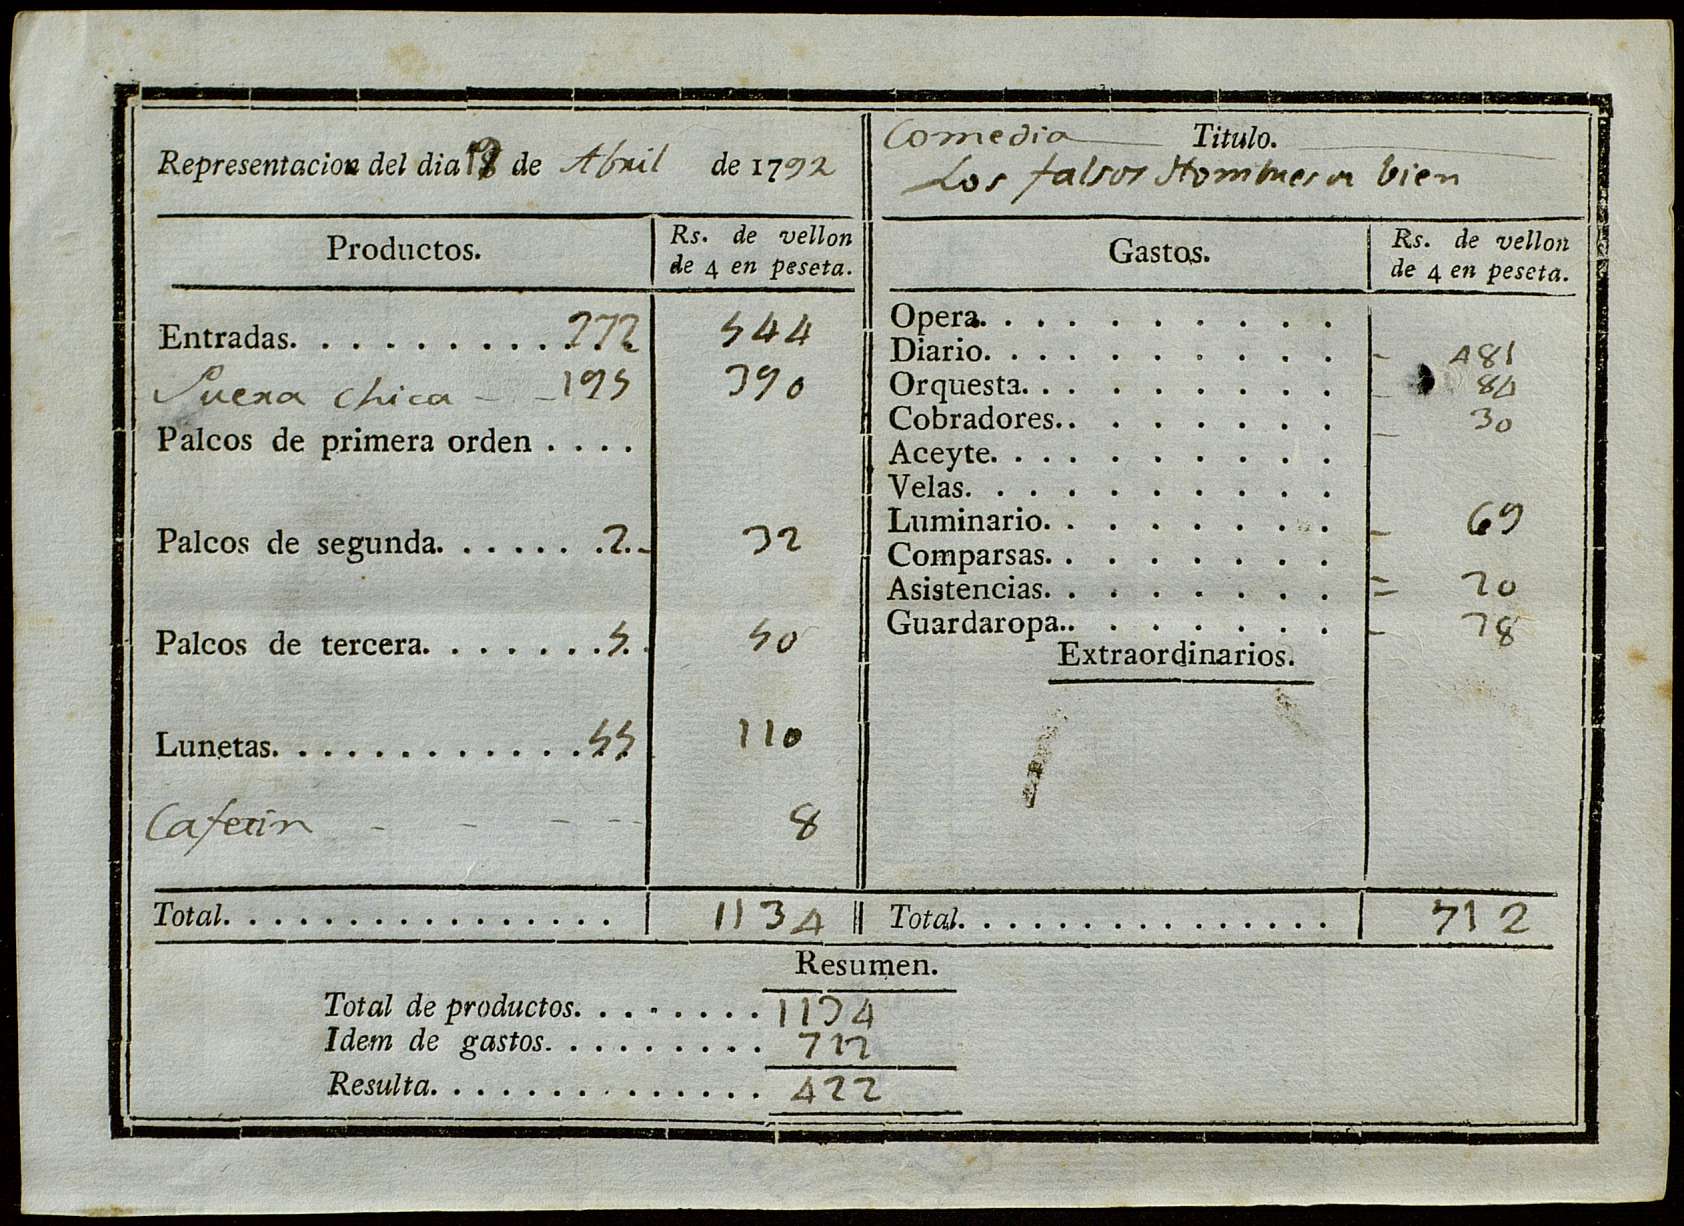 Representacion del dia de Abril de 1792
Comedia Titulo.
Los falsos Hombres de bien
Productos. Rs. de vellon de 4 en peseta.
Entradas. . . . . . . . . . . . 272 544
Puerta chica - - 195 390
Palcos de primera orden . . . .
Palcos de segunda. . . . . . . 2. 32
Palcos de tercera. . . . . . . 5. 50
Lunetas. . . . . . . . . . . . 55 110
Cafetin - - - - 8
Total. . . . . . . . . . . . . . . 1134
Gastos. Rs. de vellon de 4 en peseta.
Opera. . . . . . . . . .
Diario. . . . . . . . . . - 481
Orquesta. . . . . . . . . - 84
Cobradores. . . . . . . . - 30
Aceyte. . . . . . . . . .
Velas. . . . . . . . . . .
Luminario. . . . . . . . - 69
Comparsas. . . . . . . .
Asistencias. . . . . . . . = 20
Guardaropa. . . . . . . . - 28
Extraordinarios.
Total. . . . . . . . . . . . . . . 712
Resumen.
Total de productos. . . . . . . . 1134
Idem de gastos. . . . . . . . . 712
Resulta. . . . . . . . . . . . . . 422